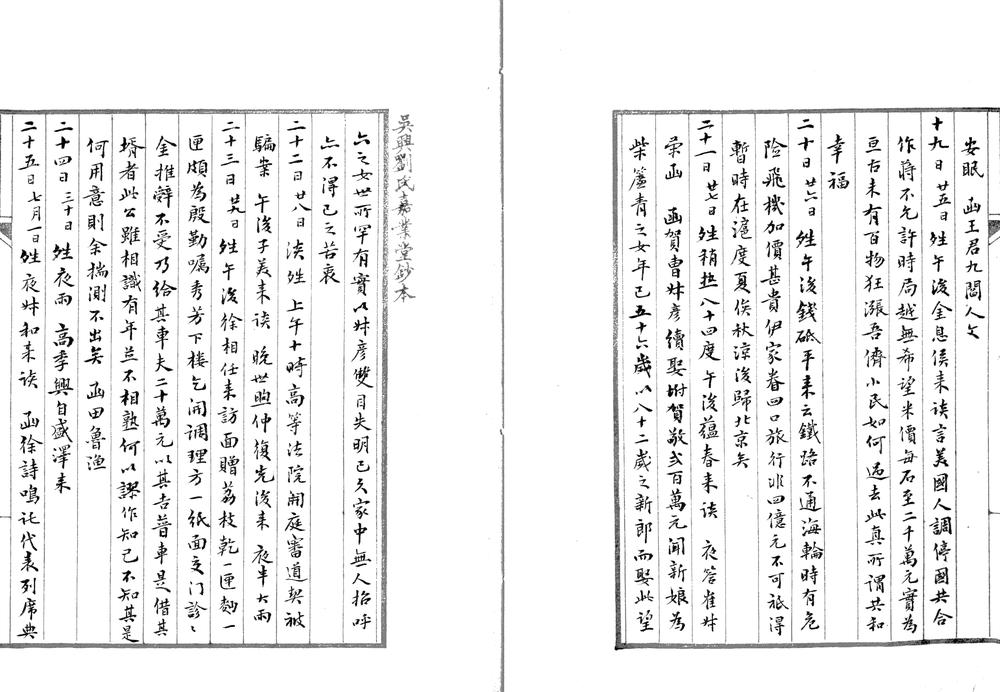 安眠　函王君九閣人文
十九日 廿五日 姓 午後金息侯來談言美國人調停國共合
作蔣不允許時局越無希望米價每石至二千萬元實為
亘古未有百物狂漲吾儕小民如何過去此真所謂共和
幸福
二十日 廿六日 姓 午後錢砥平來云鐵路不通海輪時有危
險飛機加價甚貴伊家眷四口旅行非四億元不可祗得
暫時在滬度夏俟秋涼後歸北京矣
二十一日 廿七日 姓 稍热八十四度 午後蘊春來談　夜答崔姓
榮函　函賀曹姓彥續娶坿賀敬弍百萬元聞新娘為
柴簠青之女年已五十六歲以八十二歲之新郎而娶此望
六之女世所罕有實以姓彥雙目失明已久家中無人招呼
亦不得已之苦衷
二十二日 廿八日 淡姓 上午十時高等法院開庭審道契被
騙案　午後子美來談　晚世煦仲復先後來　夜半大雨
二十三日 廿九日 姓 午後徐相任來訪面贈荔枝乾一匣麪一
匣頗為殷勤囑秀芳下樓乞開調理方一紙面交門診
金推辭不受乃給其車夫二十萬元以其吉普車是借其
壻者此公雖相識有年並不相熟何以謬作知己不知其是
何用意則余揣測不出矣　函田魯漁
二十四日 三十日 姓 夜雨　高季興自盛澤來
二十五日 七月一日 姓 夜姓和來談　函徐詩鳴託代表列席典
吳興劉氏嘉業堂鈔本